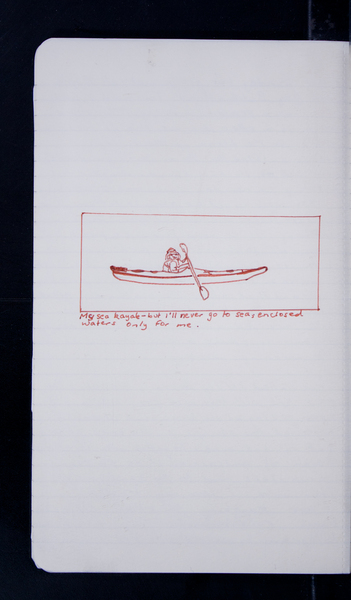 My sea kayak - but i'll never go to sea, enclosed
waters only for me.